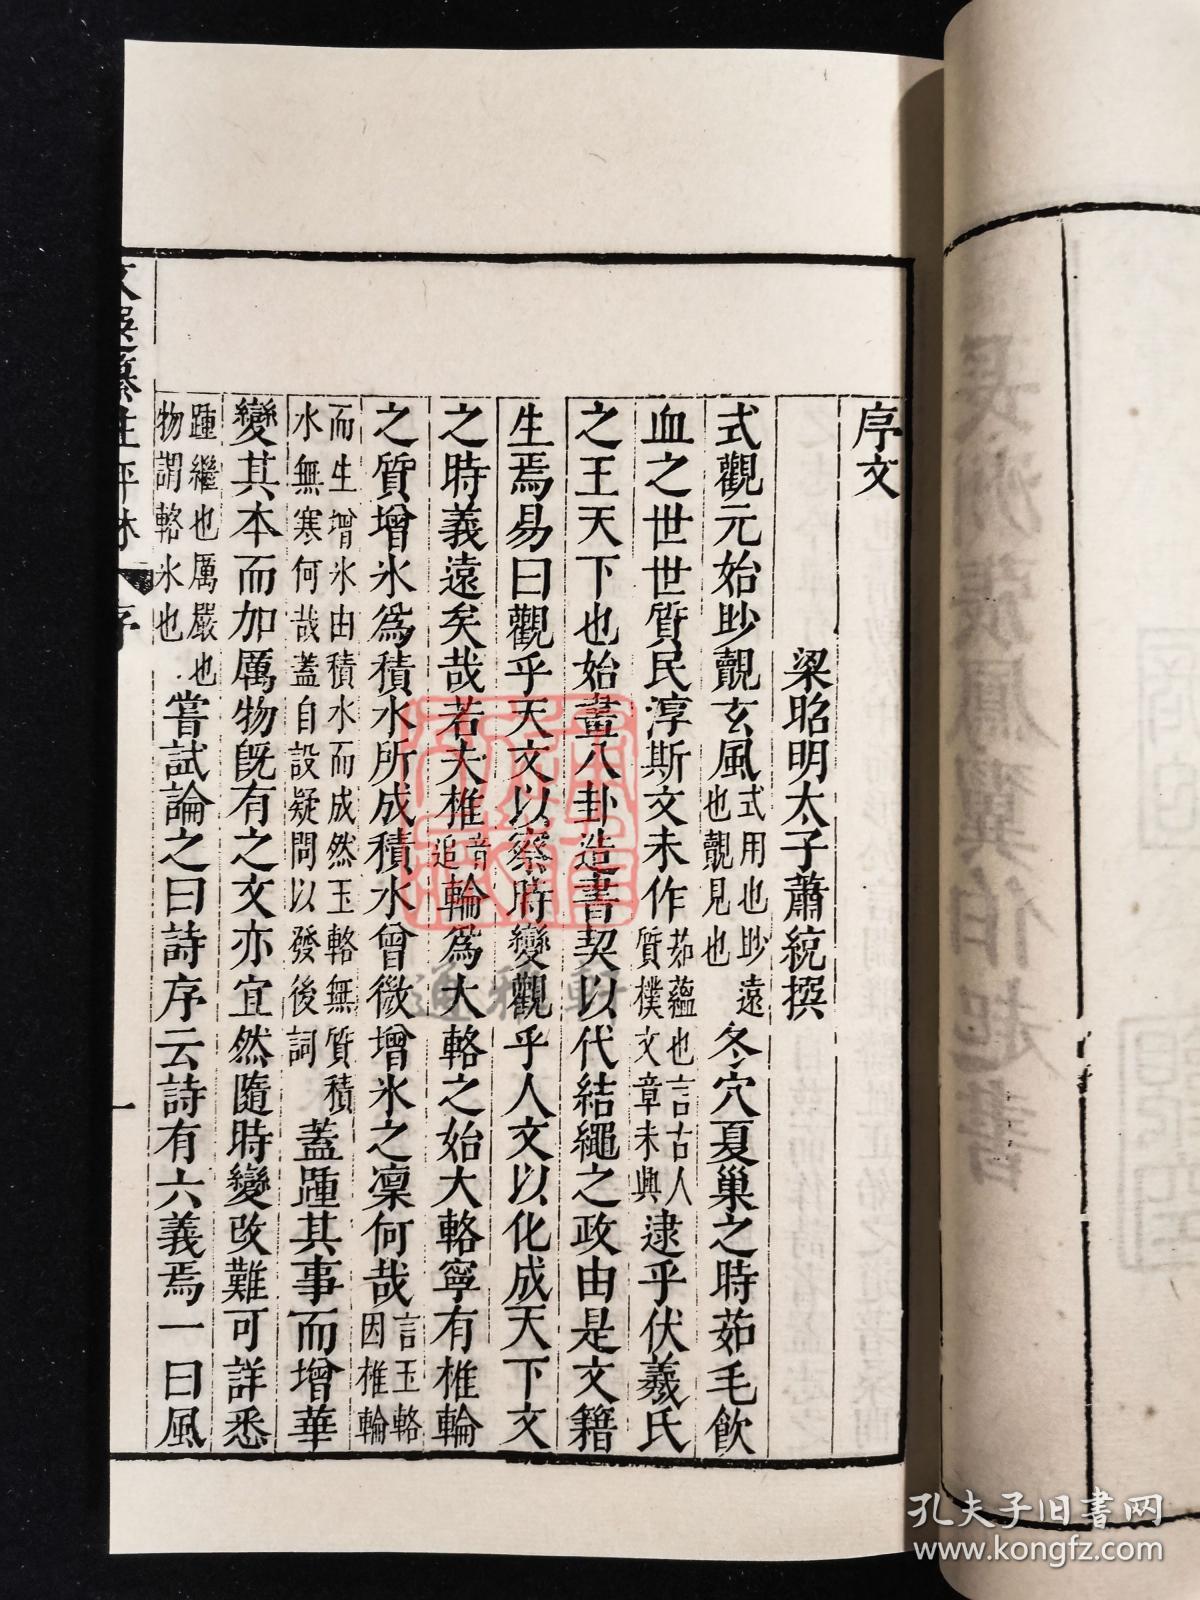 序文
梁昭明太子蕭統撰
式觀元始眇覿玄風式用也眇遠也覿見也冬穴夏巢之時茹毛飲
血之世世質民淳斯文未作茹蘊也言古人質樸文章未興逮乎伏羲氏
之王天下也始畫八卦造書契以代結繩之政由是文籍
生焉易曰觀乎天文以察時變觀乎人文以化成天下文
之時義遠矣哉若夫椎音追輪為大輅之始大輅寧有椎輪
之質增冰為積水所成積水曾微增冰之凜何哉言玉輅因椎輪
而生增冰由積水而成然玉輅無質積水無寒何哉蓋自設疑問以發後詞蓋踵其事而增華
變其本而加厲物既有之文亦宜然隨時變改難可詳悉
踵繼也厲嚴也物謂輅冰也嘗試論之曰詩序云詩有六義焉一曰風
文選纂註評林 序 一
通雅軒
孔夫子旧书网
www.kongfz.com